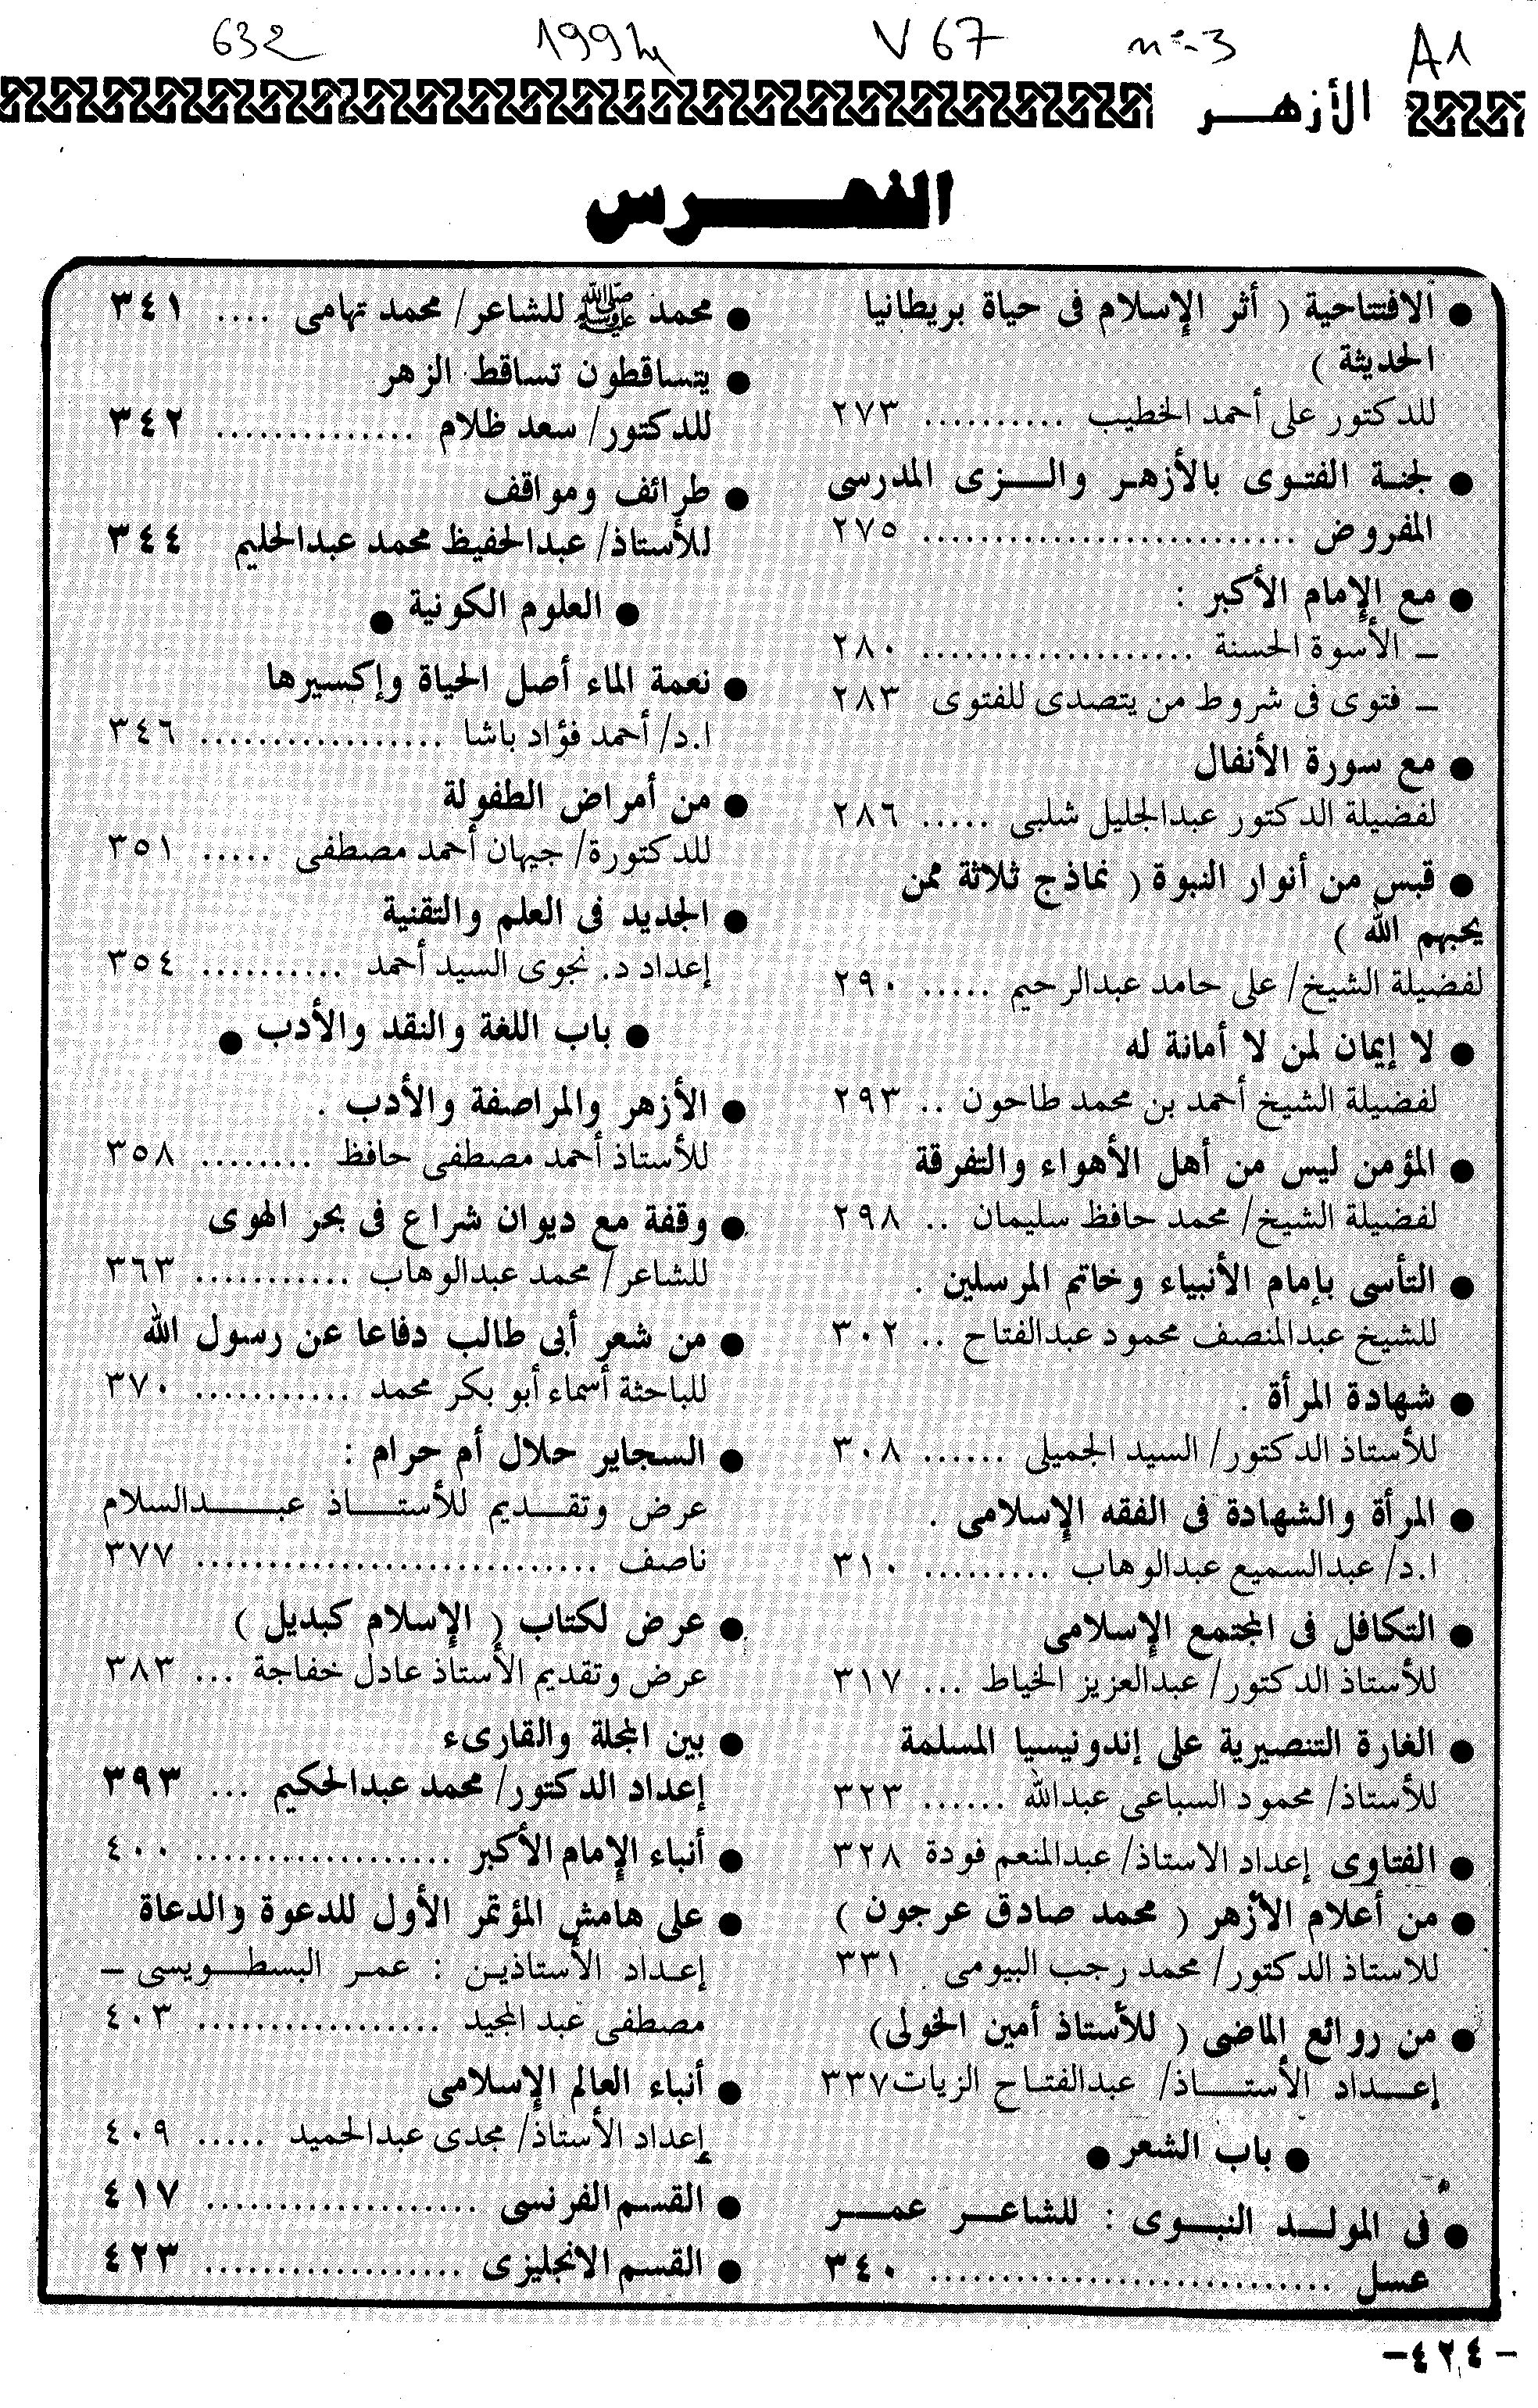 632 1994 V 67 n°-3 A1
الأزهر
الفهرس
● الافتتاحية ( أثر الإسلام فى حياة بريطانيا
الحديثة )
للدكتور على أحمد الخطيب .......... ٢٧٣
● لجنة الفتوى بالأزهر والزى المدرسى
المفروض .......................... ٢٧٥
● مع الإمام الأكبر :
ـ الأسوة الحسنة ................... ٢٨٠
ـ فتوى فى شروط من يتصدى للفتوى ٢٨٣
● مع سورة الأنفال
لفضيلة الدكتور عبدالجليل شلبى ..... ٢٨٦
● قبس من أنوار النبوة ( نماذج ثلاثة ممن
يحبهم الله )
لفضيلة الشيخ/ على حامد عبدالرحيم ..... ٢٩٠
● لا إيمان لمن لا أمانة له
لفضيلة الشيخ أحمد بن محمد طاحون .. ٢٩٣
● المؤمن ليس من أهل الأهواء والتفرقة
لفضيلة الشيخ/ محمد حافظ سليمان .. ٢٩٨
● التأسى بإمام الأنبياء وخاتم المرسلين .
للشيخ عبدالمنصف محمود عبدالفتاح .. ٣٠٢
● شهادة المرأة .
للأستاذ الدكتور/ السيد الجميلى ...... ٣٠٨
● المرأة والشهادة فى الفقه الإسلامى .
ا.د/ عبدالسميع عبدالوهاب ......... ٣١٠
● التكافل فى المجتمع الإسلامى
للأستاذ الدكتور/ عبدالعزيز الخياط ... ٣١٧
● الغارة التنصيرية على إندونيسيا المسلمة
للأستاذ/ محمود السباعى عبدالله ...... ٣٢٣
● الفتاوى إعداد الاستاذ/ عبدالمنعم فودة ٣٢٨
● من أعلام الأزهر ( محمد صادق عرجون )
للاستاذ الدكتور/ محمد رجب البيومى ٣٣١
● من روائع الماضى ( للأستاذ أمين الخولى)
إعداد الأستاذ/ عبدالفتاح الزيات ٣٣٧
● باب الشعر ●
● فى المولد النبوى : للشاعر عمر
عسل ............................ ٣٤٠
● محمد ﷺ للشاعر/ محمد تهامى .... ٣٤١
● يتساقطون تساقط الزهر
للدكتور/ سعد ظلام .............. ٣٤٢
● طرائف ومواقف
للأستاذ/ عبدالحفيظ محمد عبدالحليم ٣٤٤
● العلوم الكونية ●
● نعمة الماء أصل الحياة وإكسيرها
ا.د/ أحمد فؤاد باشا ................. ٣٤٦
● من أمراض الطفولة
للدكتورة/ جيهان أحمد مصطفى ..... ٣٥١
● الجديد فى العلم والتقنية
إعداد د. نجوى السيد أحمد .......... ٣٥٤
● باب اللغة والنقد والأدب ●
● الأزهر والمراصفة والأدب .
للأستاذ أحمد مصطفى حافظ ........ ٣٥٨
● وقفة مع ديوان شراع فى بحر الهوى
للشاعر/ محمد عبدالوهاب ........... ٣٦٣
● من شعر أبى طالب دفاعا عن رسول الله
للباحثة أسماء أبو بكر محمد ........... ٣٧٠
● السجاير حلال أم حرام :
عرض وتقديم للأستاذ عبدالسلام
ناصف ............................ ٣٧٧
● عرض لكتاب ( الإسلام كبديل )
عرض وتقديم الأستاذ عادل خفاجة ... ٣٨٣
● بين المجلة والقارىء
إعداد الدكتور/ محمد عبدالحكيم ... ٣٩٣
● أنباء الإمام الأكبر .................. ٤٠٠
● على هامش المؤتمر الأول للدعوة والدعاة
إعداد الأستاذين : عمر البسطويسى ـ
مصطفى عبد المجيد ................. ٤٠٣
● أنباء العالم الإسلامى
إعداد الأستاذ/ مجدى عبدالحميد ..... ٤٠٩
● القسم الفرنسى ................... ٤١٧
● القسم الانجليزى .................. ٤٢٣
-٤٢٤-